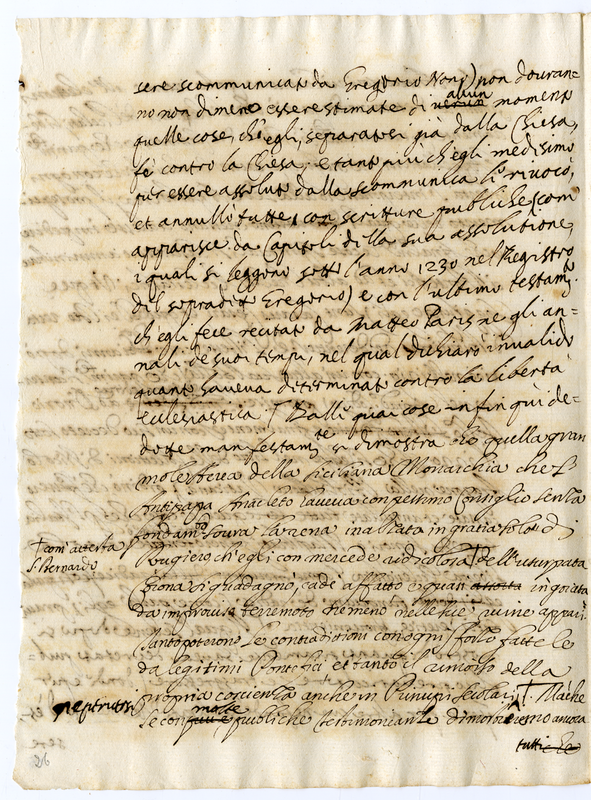 sere scommunicato da Gregorio Nono) non douran=
no non dimeno essere stimate di verun alcun momento
quelle cose, ch'egli, separatosi già dalla Chiesa,
fè contro la Chiesa, e tanto più ch'egli medisimo
per essere assoluto dalla scommunica le rivocò,
et annullò tutte, con scritture publiche (com
apparisce da Capitoli della sua assolutione,
i quali si leggono sotto l'anno 1230 nel Registro
del sopradito Gregorio) e con l'ultimo testam.to
ch'egli fece recitato da Matteo Paris ne gli an=
nali de suoi tempi, nel qual dichiarò invalido
quanto haveva determinato contro la libertà
ecclesiastica. Dalle quai cose infin qui de=
dotte manifestam.te si dimostra che quella gran
mole della siciliana Monarchia che l'
Antipapa Anacleto haveva con pessimo Consiglio senza
fondam.to soura l'arena inalzata in gratia solo di
Rugiero ch'egli con mercede ridicolosa † dell'usurpata
† com' attesta
S. Bernardo
Corona si guadagnò, cade affatto e quasi ingoiata
da improviso terremoto ne meno nelle sue ruine appari.
Tanto poterono le contraditioni con ogni sforzo fatte le
da legitimi Pontefici et tanto il rimorso della
propria coscienza anche in Principi secolari. Mà che
le con molte publiche testimonianze dimostreremo ancora
tutti
26